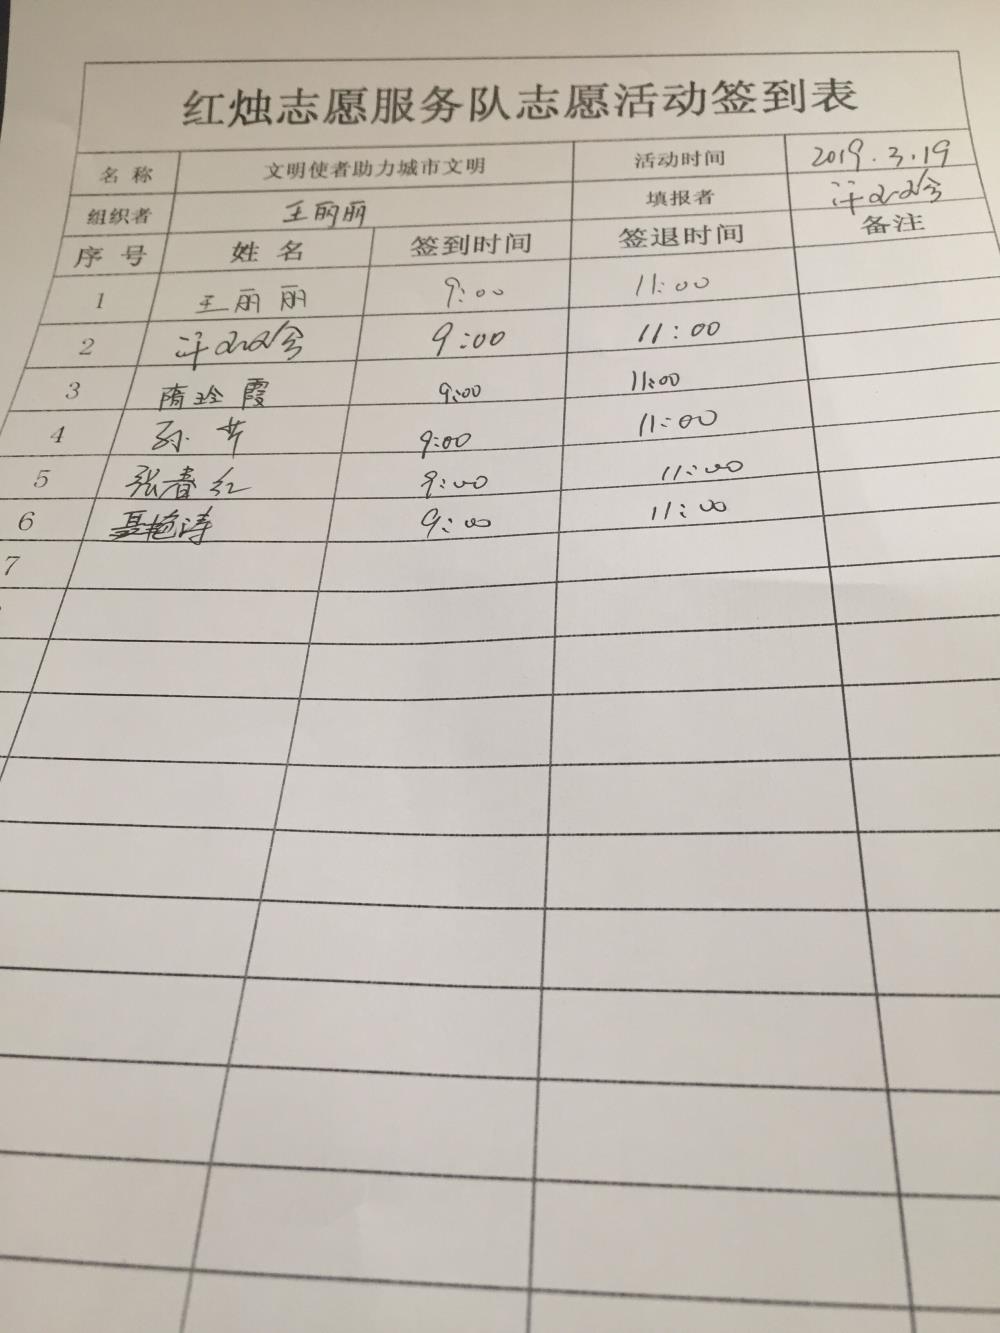 红烛志愿服务队志愿活动签到表
名 称 文明使者助力城市文明 活动时间 2019.3.19
组织者 王丽丽 填报者
序 号 姓 名 签到时间 签退时间 备注
1 王丽丽 9:00 11:00
2 9:00 11:00
3 隋玲霞 9:00 11:00
4 孙 9:00 11:00
5 张春红 9:00 11:00
6 聂艳涛 9:00 11:00
7